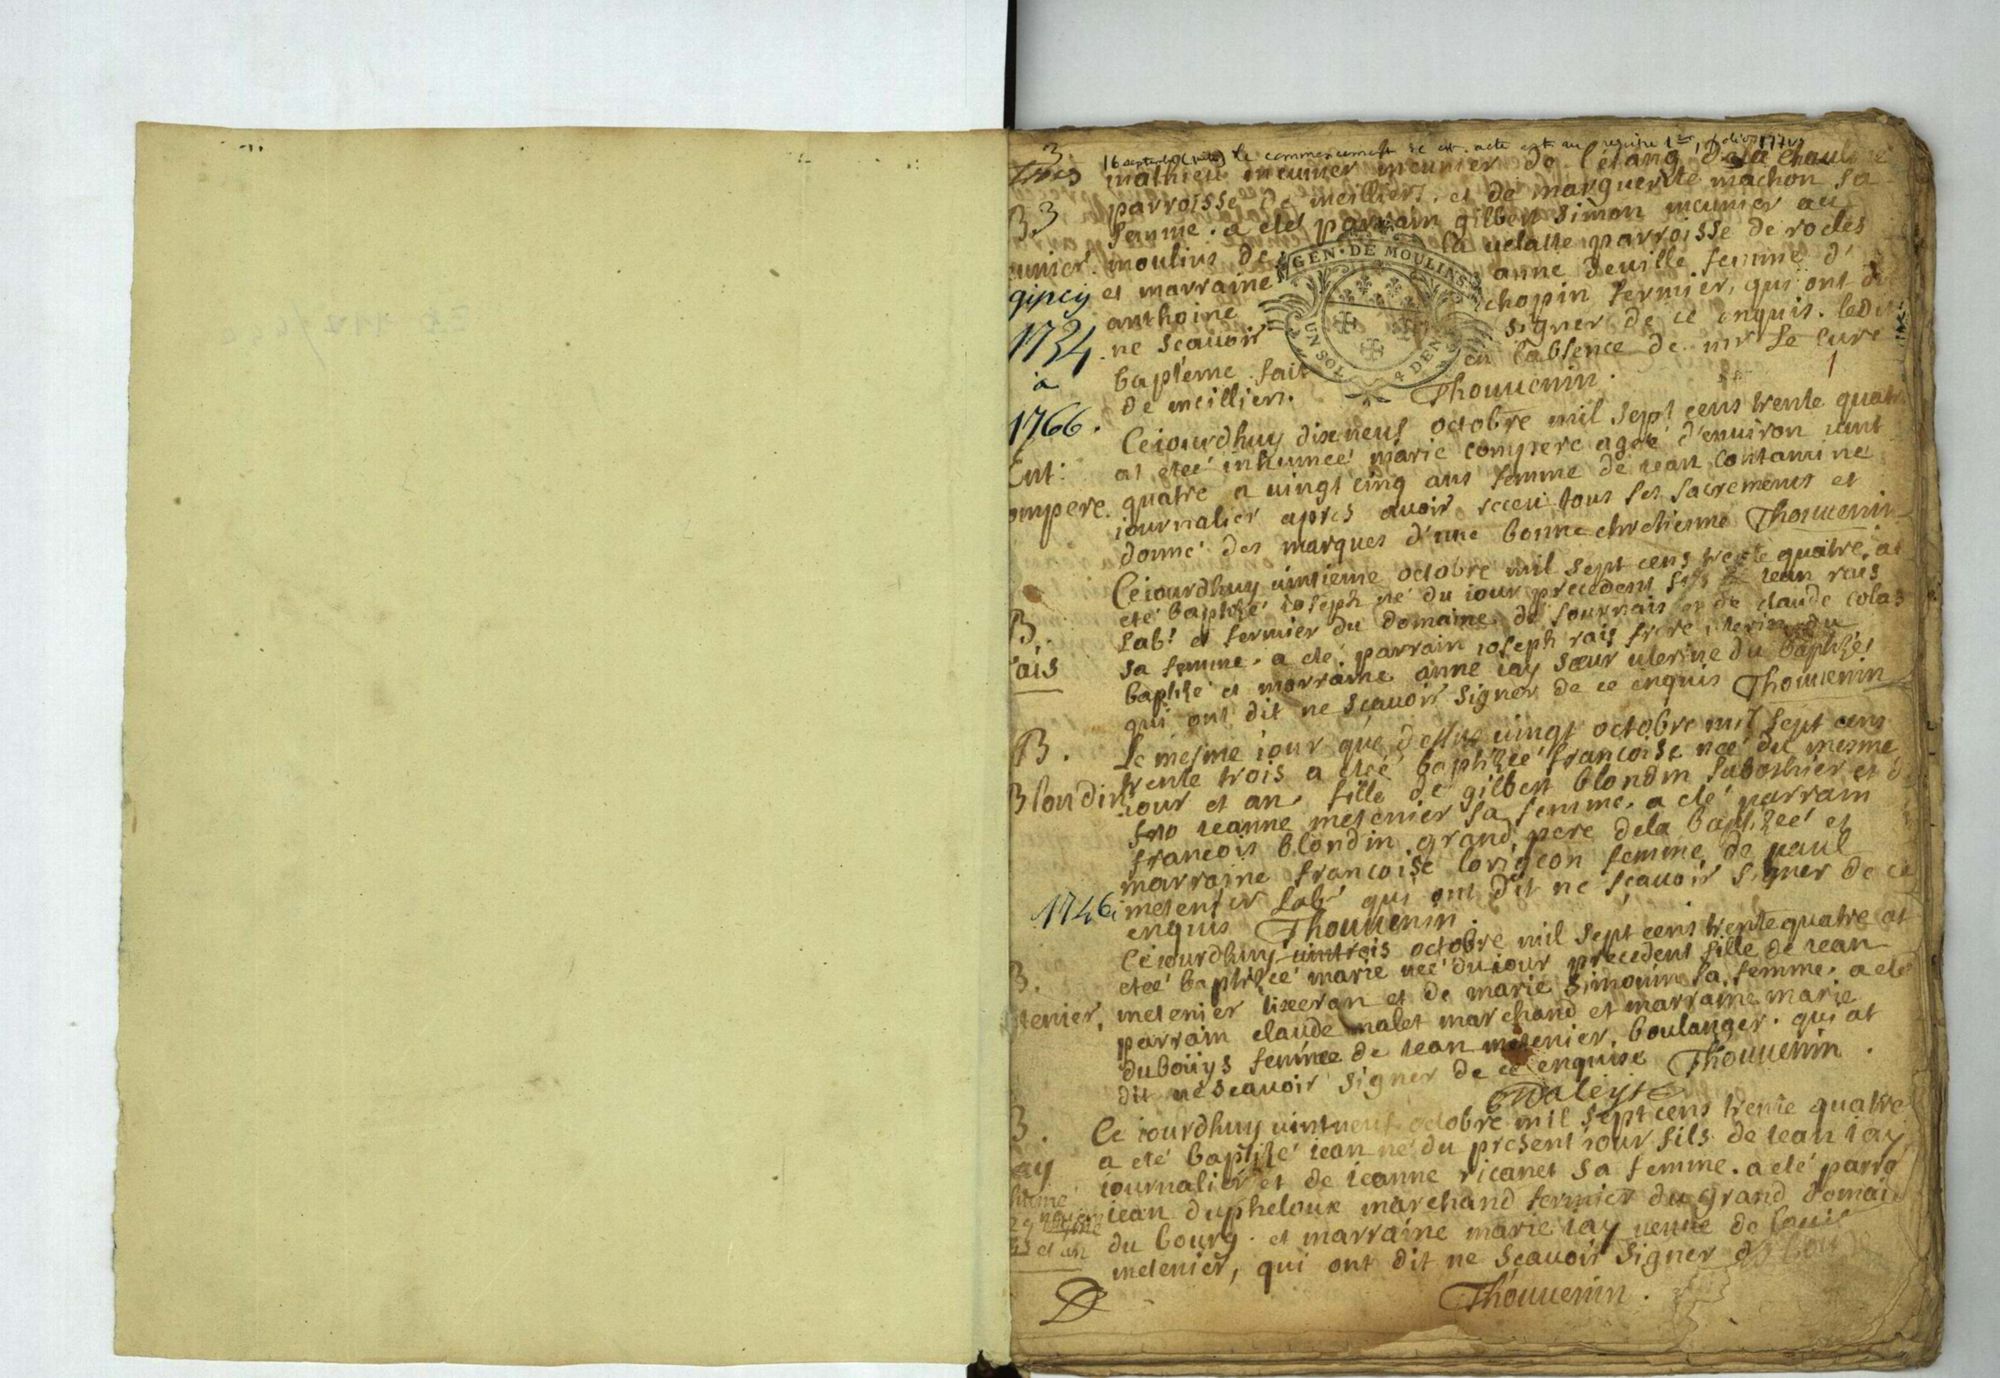 3
16 septembre le commencement de cet acte est au registre 1er
mathieu meunier meunier de l'étang de la chaulme
parroisse de meilliers. et de marguerite machon sa
B 3
femme. a eté parrain gilbert simon meunier au
unier.
moulins de la velatte parroisse de rocles
gipcy
et marraine anne deville femme d'
GEN·DE MOULINS
anthoine chopin fermier, qui ont dit
1734
ne scavoir signer de ce enquis. ledit
UN SOL
4 DEN
à
baptéme fait en l'absence de mr le curé
1
de meilliers. Thouvenin.
1766.
Ceiourdhuy dixneuf octobre mil sept cens trente quatre
Ent:
at eteé inhumeé marie compere ageé d'environ vint
ompere.
quatre a vingt cinq ans femme de iean contamine
iournalier apres avoir receu tous ses sacremens et
donné des marques d'une bonne chretienne Thouvenin
Ceiourdhuy vintieme octobre mil sept cens trente quatre at
eté baptizé ioseph né du iour precedent fils de iean rais
B.
labr et fermier du domaine de fournais et de claude colas
rais
sa femme. a eté parrain ioseph rais frere uterin du
baptizé et marraine anne iay sœur uterine du baptizé
qui ont dit ne scavoir signer de ce enquis Thouvenin
B.
Le mesme iour que dessus vingt octobre mil sept cens
trente trois a eteé baptizeé francoise neé du mesme
Blondin
iour et an. fille de gilbert blondin sabothier et de
ieanne metenier sa femme. a eté parrain
francois blondin grand pere de la baptizeé et
marraine francoise lorigeon femme de paul
1746
metenier labr qui ont dit ne scavoir signer de ce
enquis Thouvenin.
Ceiourdhuy vintrois octobre mil sept cens trente quatre at
B.
eteé baptizeé marie neé du iour precedent fille de iean
tenier,
metenier tixeran et de marie simonin sa femme. a eté
parrain claude nalet marchand et marraine marie
duboüys femme de iean metenier, boulanger. qui at
dit ne scavoir signer de ce enquise Thouvenin.
B.
Ce iourdhuy vintneuf octobre mil sept cens trente quatre
a eté baptizé iean né du present iour fils de iean iay
ay
iournalier et de ieanne ricanet sa femme. a eté parra
iean dupheloux marchand fermier du grand domai
29
et an
du bourg. et marraine marie iay veuve de louis
metenier, qui ont dit ne scavoir signer d
Thouvenin.